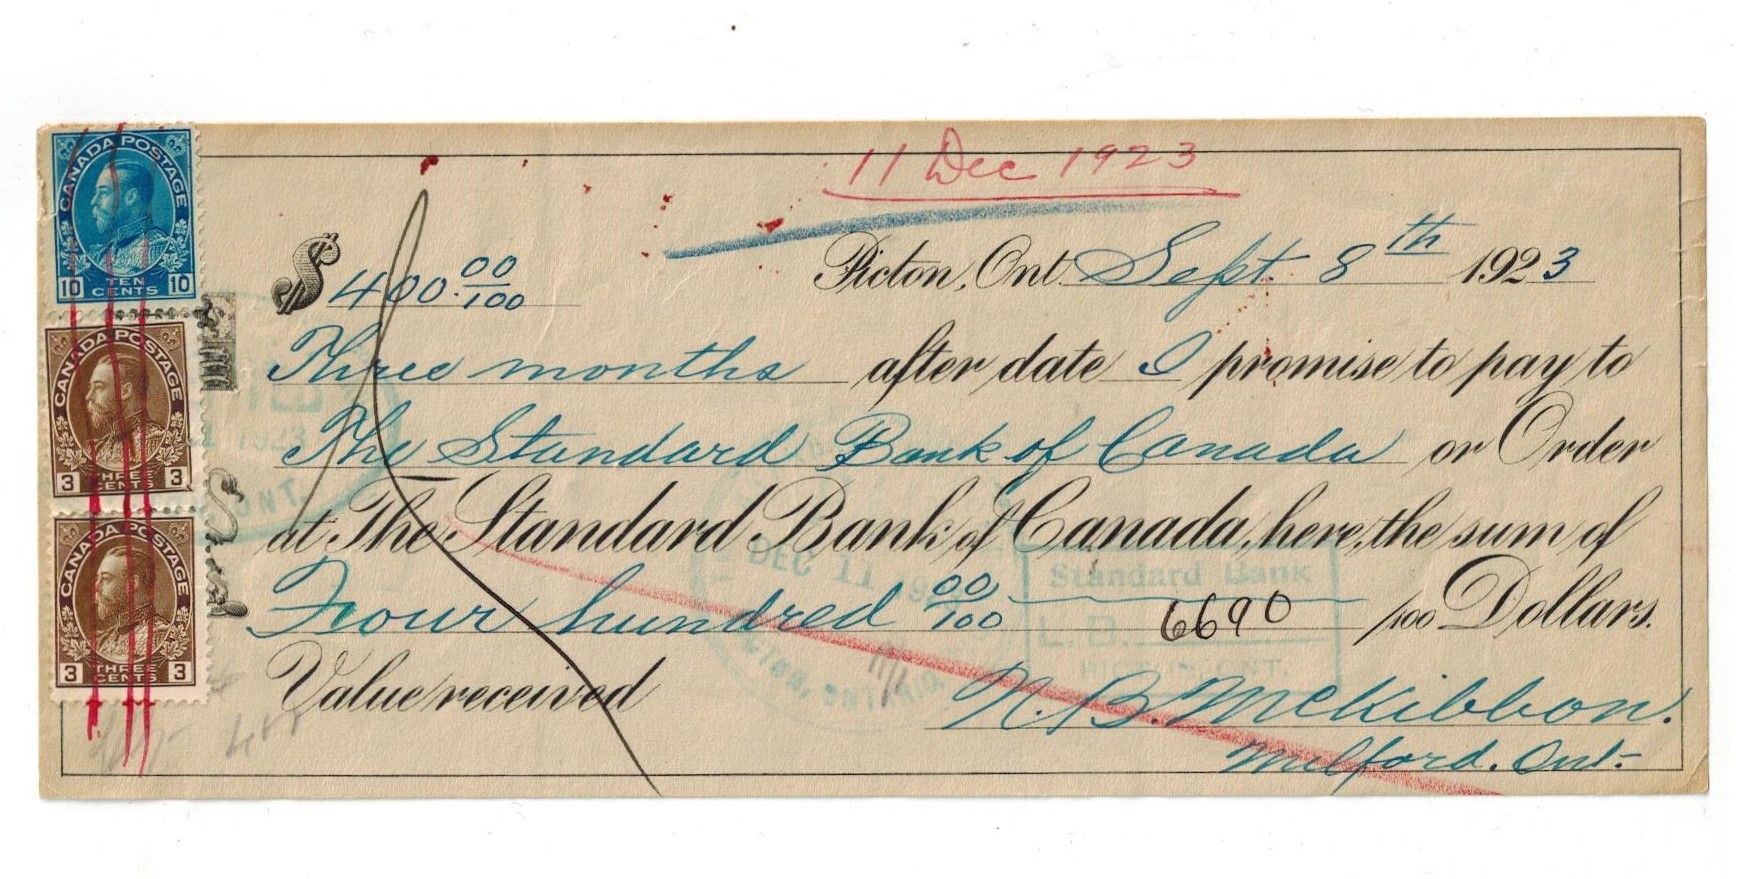 11 Dec 1923
CANADA POSTAGE
10 TEN CENTS 10
$ 400.00/100
Picton, Ont. Sept. 8th 1923
Three months after date I promise to pay to
CANADA POSTAGE
3 THREE CENTS 3
The Standard Bank of Canada or Order
at The Standard Bank of Canada, here, the sum of
CANADA POSTAGE
3 THREE CENTS 3
DEC 11
Standard Bank
Four hundred 00/100 6690 /100 Dollars.
Value received
N. B. McKibbon.
Milford. Ont.